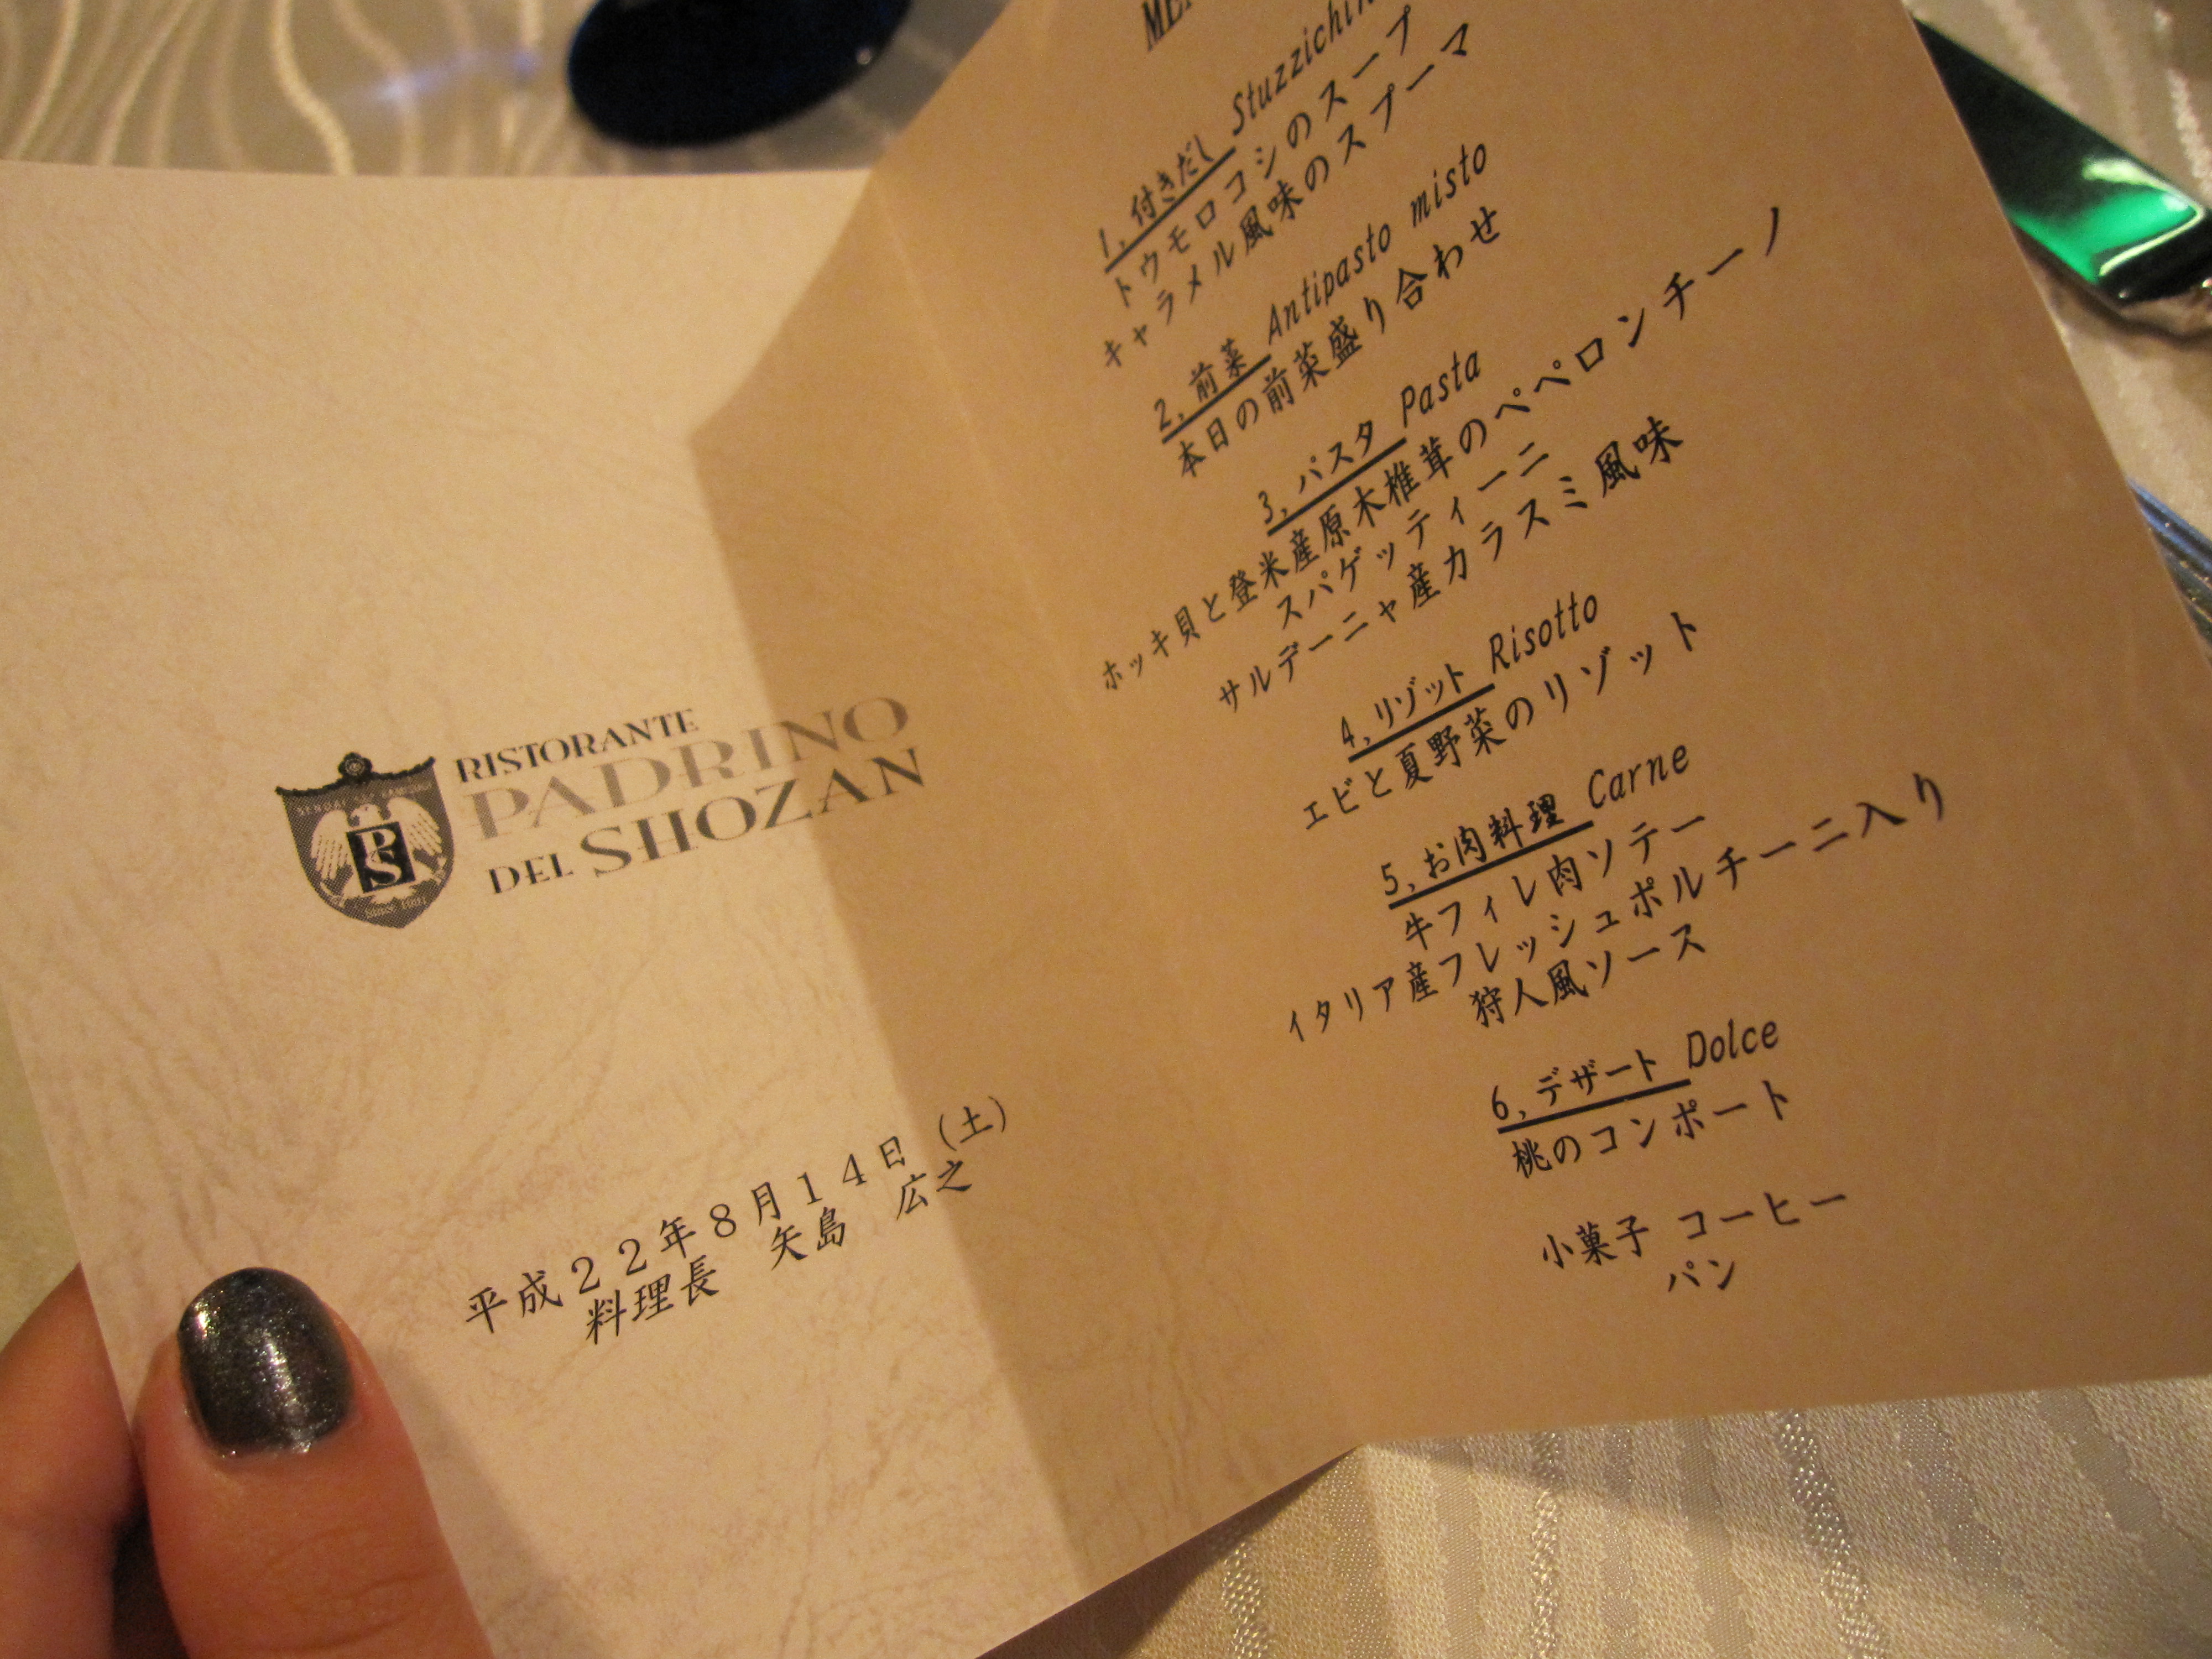 RISTORANTE
PADRINO
DEL SHOZAN
PS
Since 1991
平成22年8月14日（土）
料理長　矢島　広之
1, 付きだし
トウモロコシのスープ
キャラメル風味のスプーマ
2, 前菜 Antipasto misto
本日の前菜盛り合わせ
3, パスタ Pasta
ホッキ貝と登米産原木椎茸のペペロンチーノ
スパゲッティーニ
サルデーニャ産カラスミ風味
4, リゾット Risotto
エビと夏野菜のリゾット
5, お肉料理 Carne
牛フィレ肉ソテー
イタリア産フレッシュポルチーニ入り
狩人風ソース
6, デザート Dolce
桃のコンポート
小菓子 コーヒー
パン